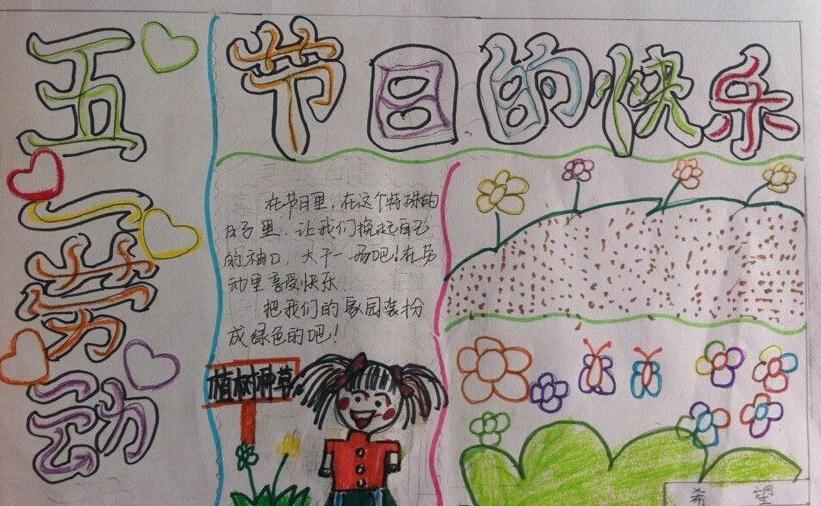 五一劳动
节日的快乐
在节日里，在这个特殊的
日子里，让我们挽起自己
的袖口，大干一场吧！在劳
动里享受快乐
把我们的家园装扮
成绿色的吧！
植树种草
希望